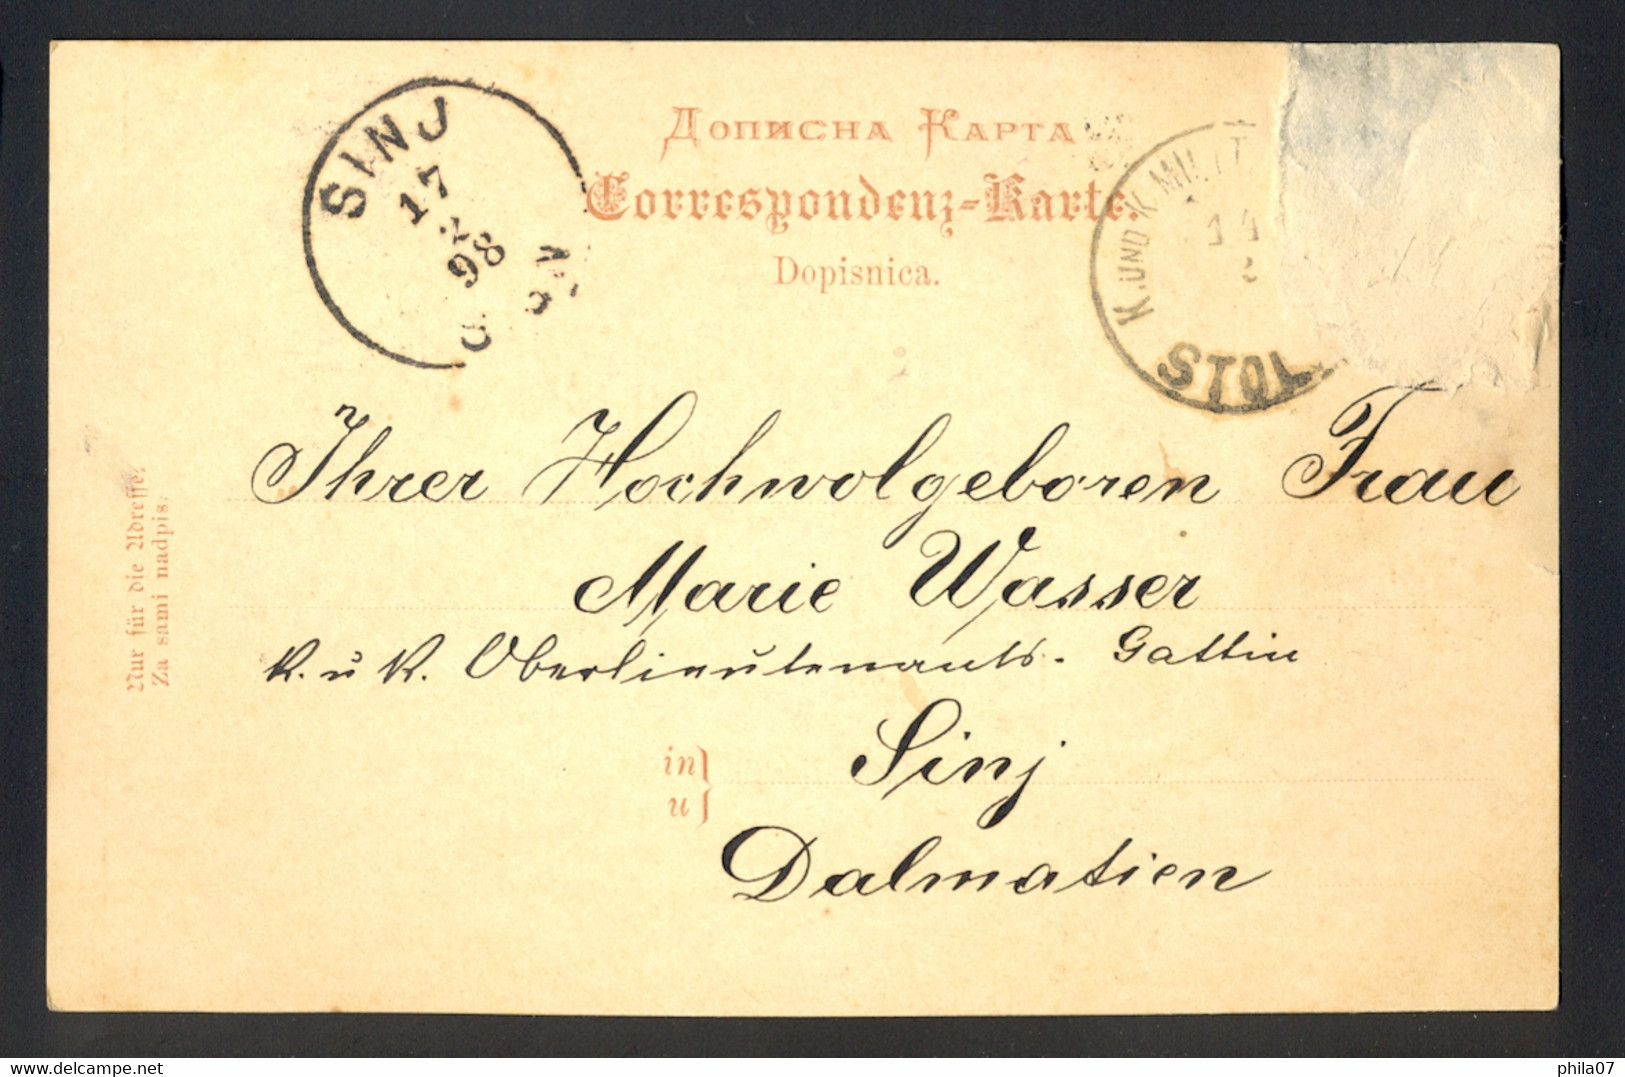 Дописна Карта
Correspondenz-Karte.
Dopisnica.
SINJ
17
2
98
K. UND K. MILIT
14
2
STOL
Nur für die Adresse.
Za sami nadpis.
Ihrer Hochwolgeboren Frau
Marie Wasser
k. u k. Oberlieutenants-Gattin
in
u
Sinj
Dalmatien
delcampe.net
phila07